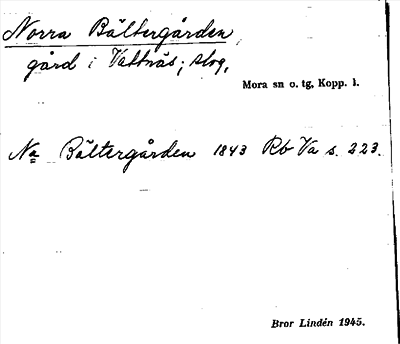 Norra Bältergården,
gård i Vattnäs, slog,
Mora sn o. tg, Kopp. l.
Na Bältergården 1843 Rb Va s. 223.
Bror Lindén 1945.